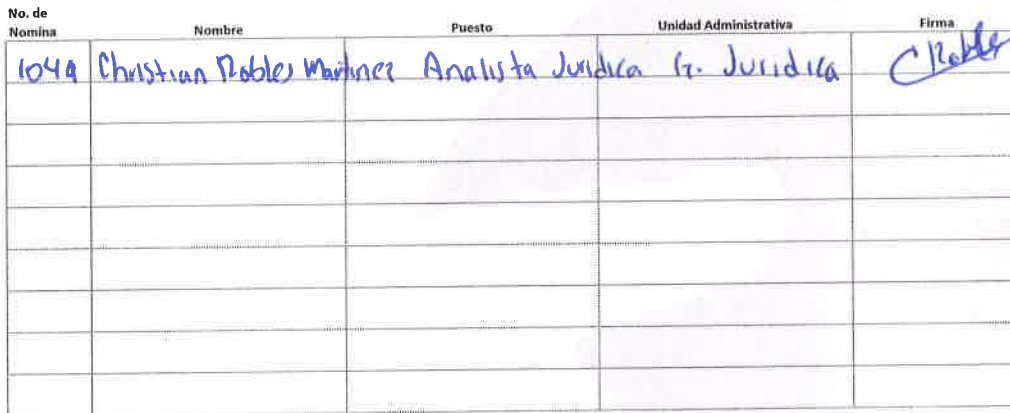 No. de
Nomina Nombre Puesto Unidad Administrativa Firma
1049 Christian Robles Martinez Analista Juridica G. Juridica CRobles